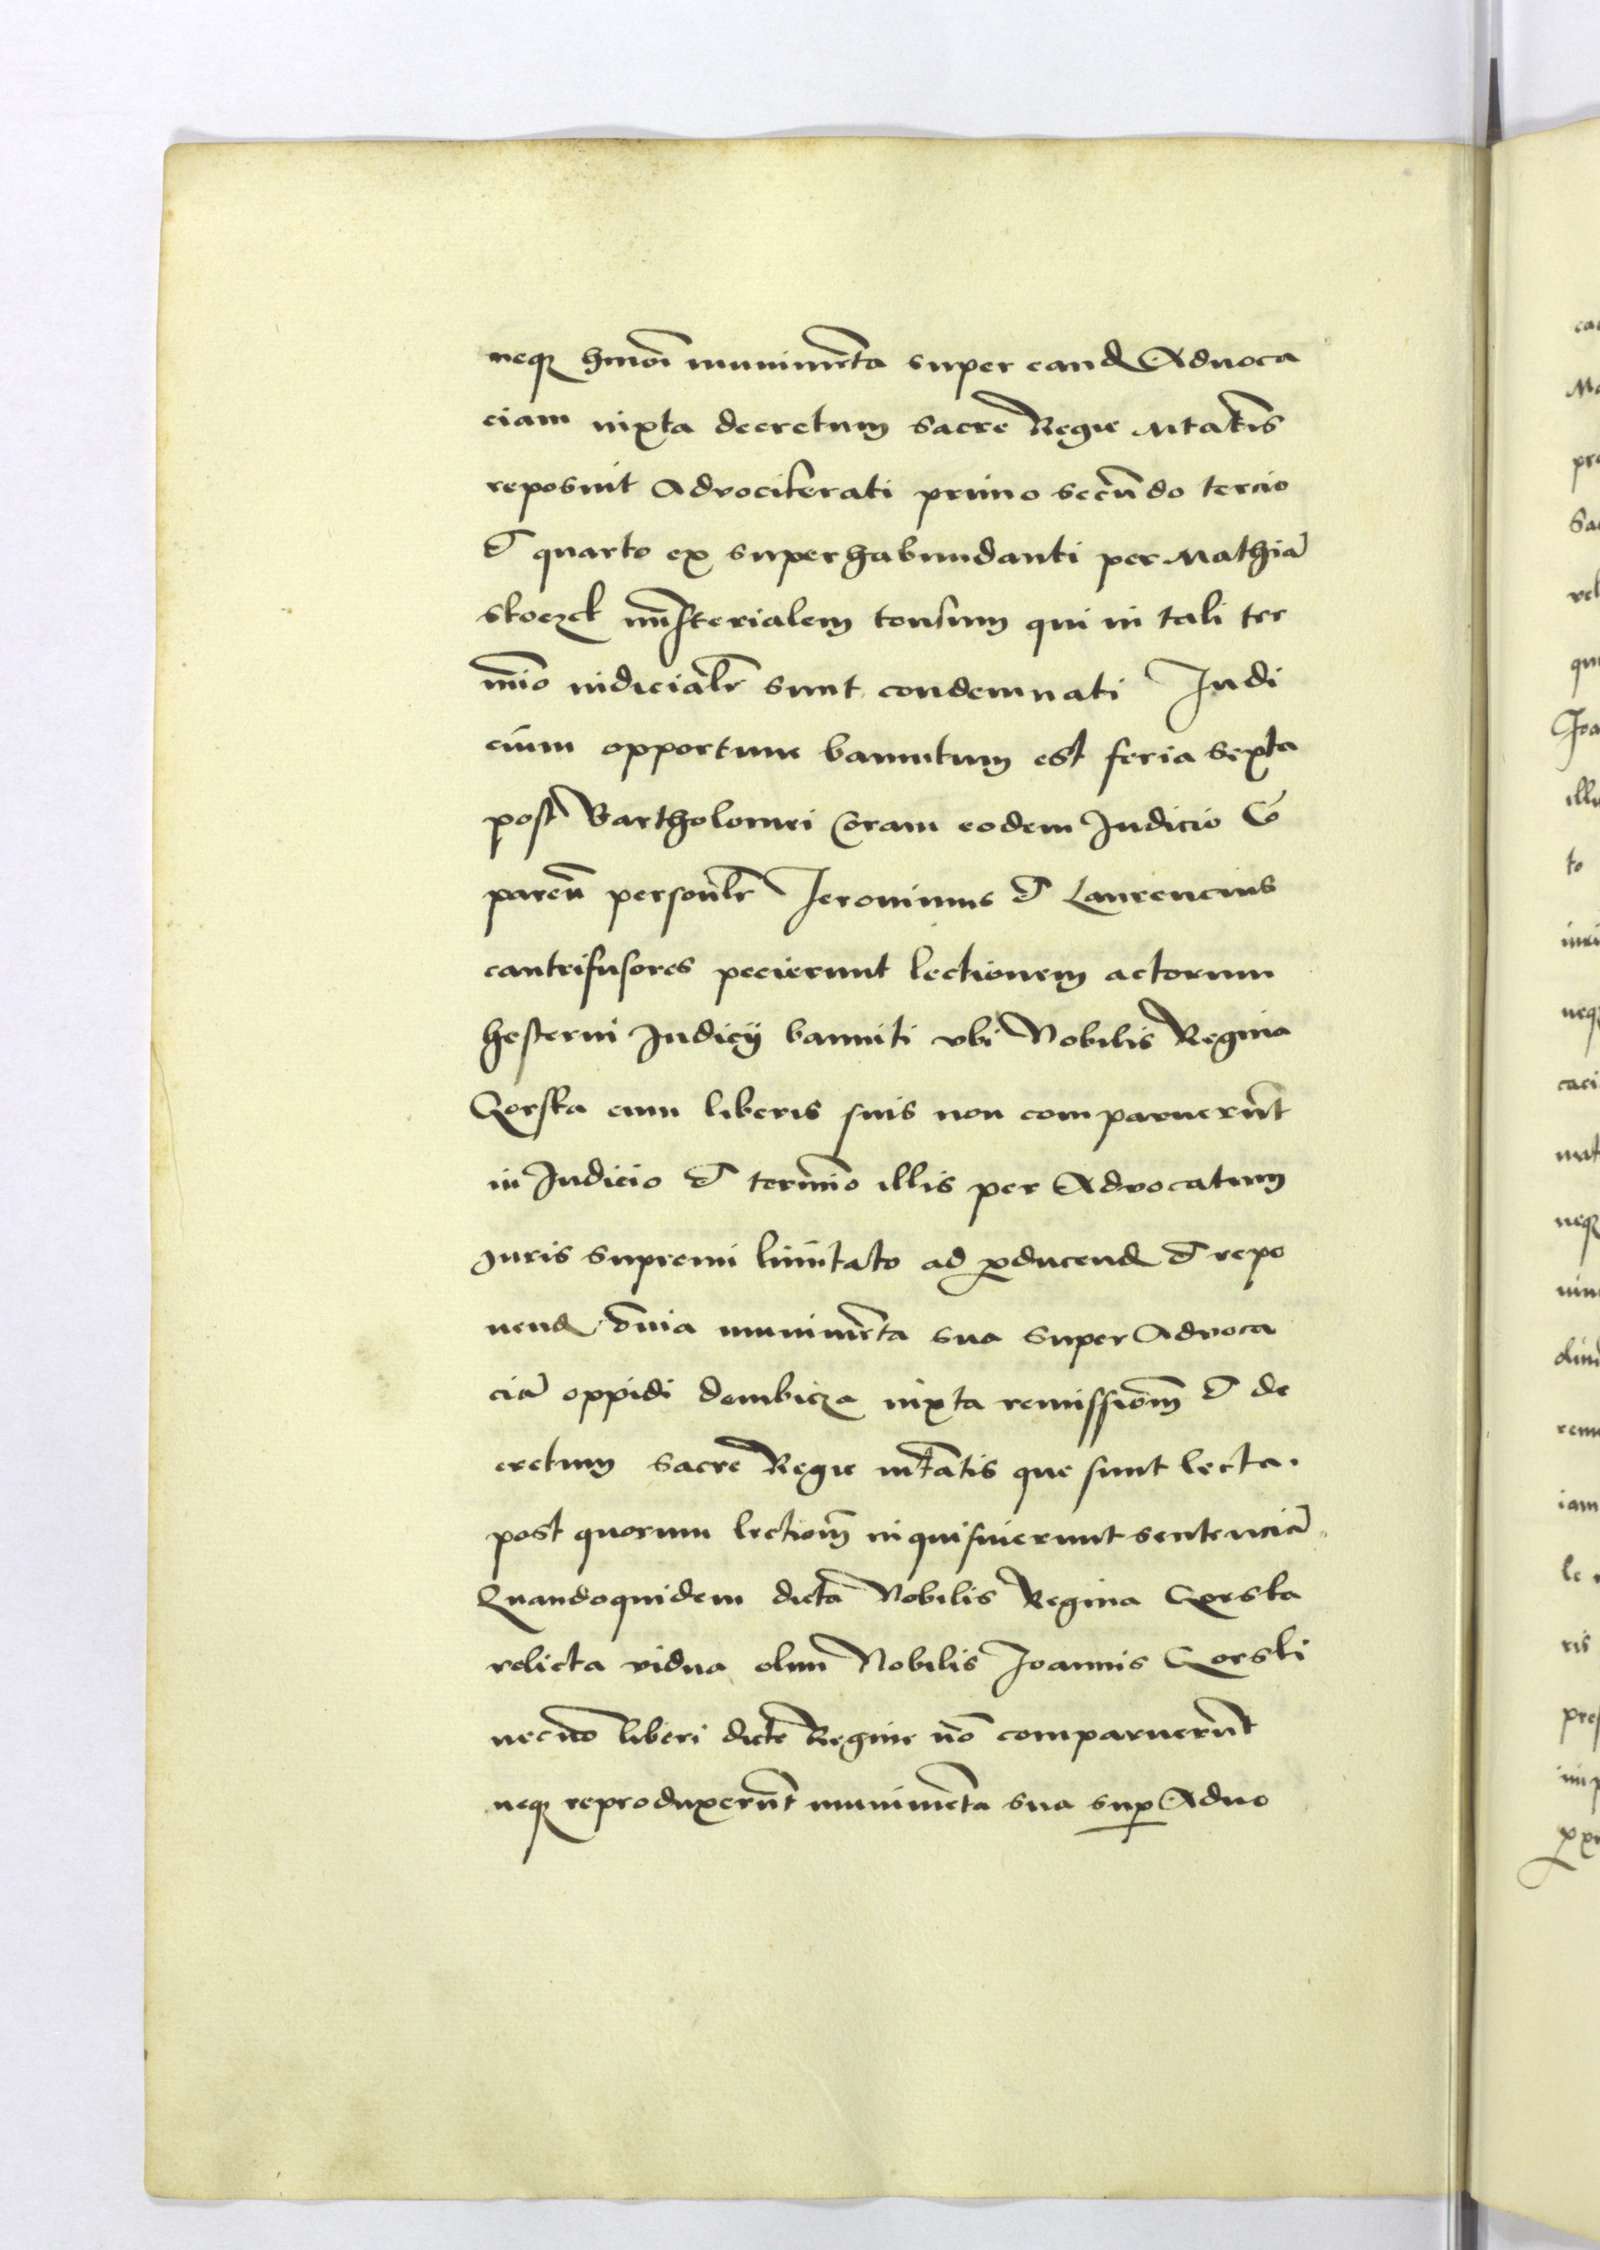 neqꝫ hmoi munimēta super eand Aduoca
ciam iuxta decretum Sacre Regie Mtatis
reposuit Advociferati primo secūndo tercio
et quarto ex superhabundanti per Mathiā
ministerialem qui in tali ter
mīo iudicialr sunt condemnati Iudi
cium opportune bannitum est feria Sexta
post Bartholomei Coram eodem Iudicio Cō
pareñ persoñlr Ieronimus et Laurencius
cantrifusores pecierunt lectionem actorum
hesterni Iudicij banniti vbi Nobilis Regina
Gorska cum liberis suis non comparuerūt
in Iudicio et termīo illis per Advocatum
Iuris supremi limitato ad ꝓducend et repo
nend om̄ia munimēta sua super Advoca
ciā oppidi dembicza iuxta remissiom̄ et de
cretum Sacre Regie mtātis que sunt lecta.
post quorum lectiom̄ inquisiuerunt sentenciā
Quandoquidem dicta Nobilis Regina Gorska
relicta vidua olim Nobilis Joannis Gorski
necnō liberi dicte Regine nō comparuerūt
neqꝫ reproduxerūt munimēta sua suꝑ Aduo
ca